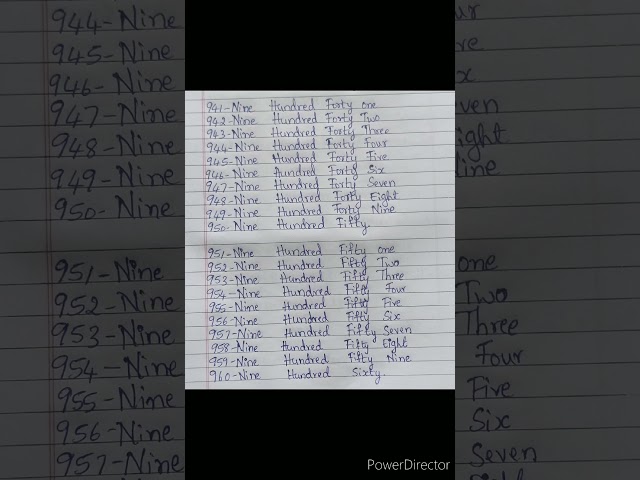 941-Nine Hundred Forty one
942-Nine Hundred Forty Two
943-Nine Hundred Forty Three
944-Nine Hundred Forty Four
945-Nine Hundred Forty Five
946-Nine Hundred Forty Six
947-Nine Hundred Forty Seven
948-Nine Hundred Forty Eight
949-Nine Hundred Forty Nine
950-Nine Hundred Fifty
951-Nine Hundred Fifty one
952-Nine Hundred Fifty Two
953-Nine Hundred Fifty Three
954-Nine Hundred Fifty Four
955-Nine Hundred Fifty Five
956-Nine Hundred Fifty Six
957-Nine Hundred Fifty Seven
958-Nine Hundred Fifty Eight
959-Nine Hundred Fifty Nine
960-Nine Hundred Sixty.
PowerDirector
944-Nine
945-Nine
946-Nine
947-Nine
948-Nine
949-Nine
950-Nine
951-Nine
952-Nine
953-Nine
954-Nine
955-Nine
956-Nine
957-Nine
one
Two
Three
Four
Five
Six
Seven